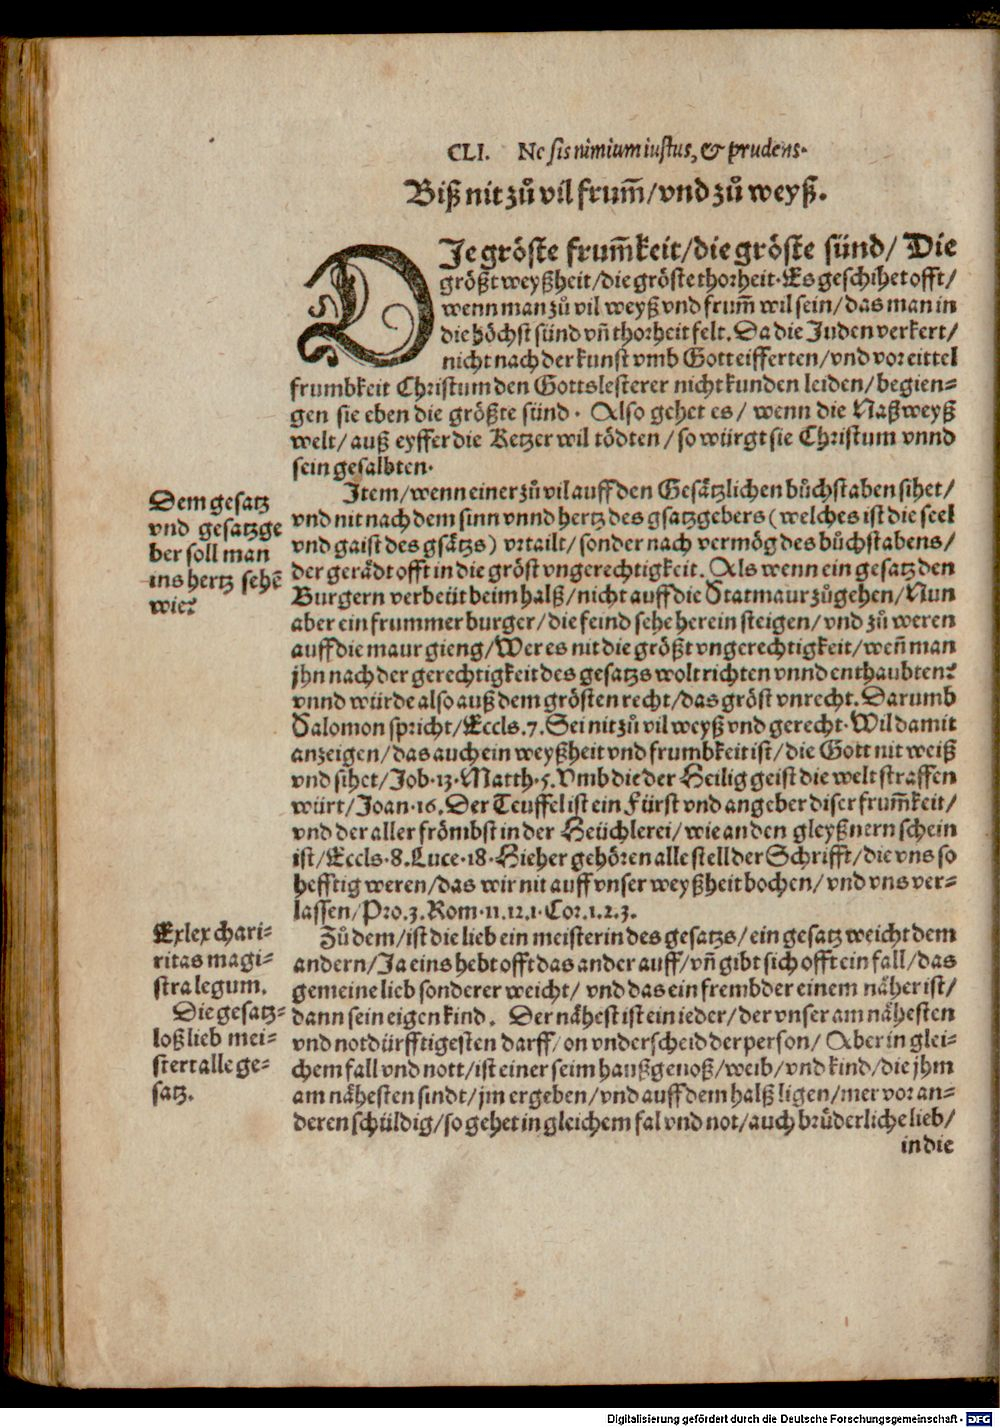 CLI. Ne sis nimium iustus, & prudens.
Biß nit zů vil frum̃/vnd zů weyß.
DIe gröste frum̃keit/die gröste sünd/ Die
größt weyßheit/die gröste thorheit. Es geschihet offt/
wenn man zů vil weyß vnd frum̃ wil sein/das man in
die höchst sünd vñ thorheit felt. Da die Juden verkert/
nicht nach der kunst vmb Gott eifferten/vnd vor eittel
frumbkeit Christum den Gottslesterer nicht kunden leiden/begien-
gen sie eben die größte sünd. Also gehet es/ wenn die Naßweyß
welt/ auß eyffer die Ketzer wil tödten/so würgt sie Christum vnnd
sein gesalbten.
Dem gesatz
vnd gesatzge
ber soll man
ins hertz sehẽ
wie?
Item/wenn einer zů vil auff den Gesätzlichen bůchstaben sihet/
vnd nit nach dem sinn vnnd hertz des gsatzgebers (welches ist die seel
vnd gaist des gsätzs) vrtailt/sonder nach vermög des bůchstabens/
der gerädt offt in die gröst vngerechtigkeit. Als wenn ein gesatz den
Burgern verbeüt beim halß/nicht auff die Statmaur zůgehen/Nun
aber ein frummer burger/die feind sehe herein steigen/vnd zů weren
auff die maur gieng/Wer es nit die größt vngerechtigkeit/weñ man
jhn nach der gerechtigkeit des gesatzs wolt richten vnnd enthaubten?
vnnd würde also auß dem grösten recht/das gröst vnrecht. Darumb
Salomon spricht/Eccls.7. Sei nit zů vil weyß vnd gerecht. Wil damit
anzeigen/das auch ein weyßheit vnd frumbkeit ist/die Gott nit weiß
vnd sihet/Job.13.Matth.5.Vmb die der Heilig geist die welt straffen
würt/Joan.16.Der Teuffel ist ein Fürst vnd angeber diser frum̃keit/
vnd der aller frömbst in der Heüchlerei/wie an den gleyßnern schein
ist/Eccls.8.Luce.18.Hieher gehören alle stell der Schrifft/die vns so
hefftig weren/das wir nit auff vnser weyßheit bochen/vnd vns ver-
lassen/Pro.3.Rom.11.12.1.Cor.1.2.3.
Exlex chari-
ritas magi-
stra legum.
Die gesatz-
loß lieb mei-
stert alle ge-
satz.
Zů dem/ist die lieb ein meisterin des gesatzs/ein gesatz weicht dem
andern/Ja eins hebt offt das ander auff/vñ gibt sich offt ein fall/das
gemeine lieb sonderer weicht/ vnd das ein frembder einem näher ist/
dann sein eigen kind. Der nähest ist ein ieder/der vnser am nähesten
vnd notdürfftigesten darff/on vnderscheid der person/ Aber in glei-
chem fall vnd nott/ist einer seim haußgenoß/weib/vnd kind/die jhm
am nähesten sindt/jm ergeben/vnd auff dem halß ligen/mer vor an-
deren schüldig/so gehet in gleichem fal vnd not/auch brůderliche lieb/
in die
Digitalisierung gefördert durch die Deutsche Forschungsgemeinschaft - DFG